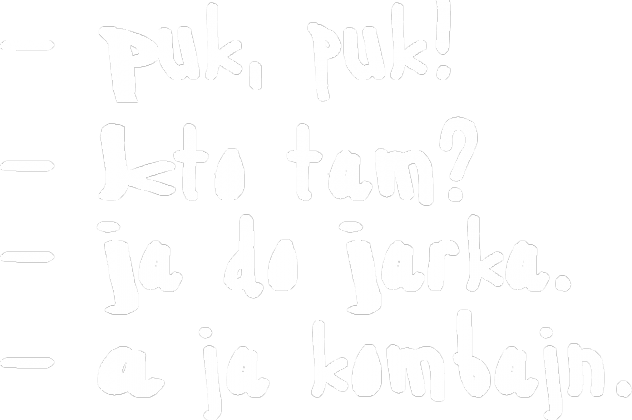 – puk, puk!
– kto tam?
– ja do jarka.
– a ja kombajn.